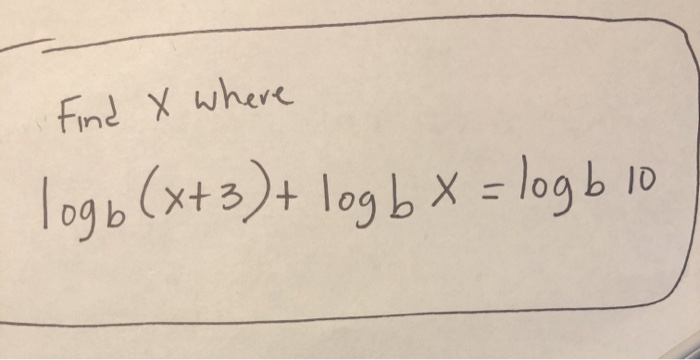 Find X where
log_b (x+3) + log b X = log b 10